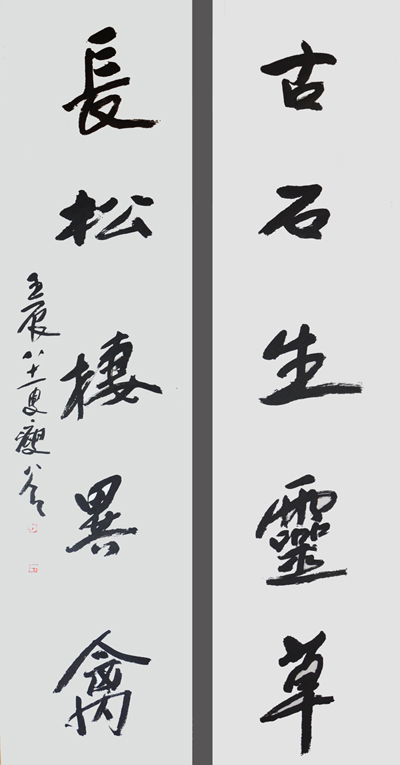 古石生靈草
長松棲異禽
壬辰八十一叟瘦谷